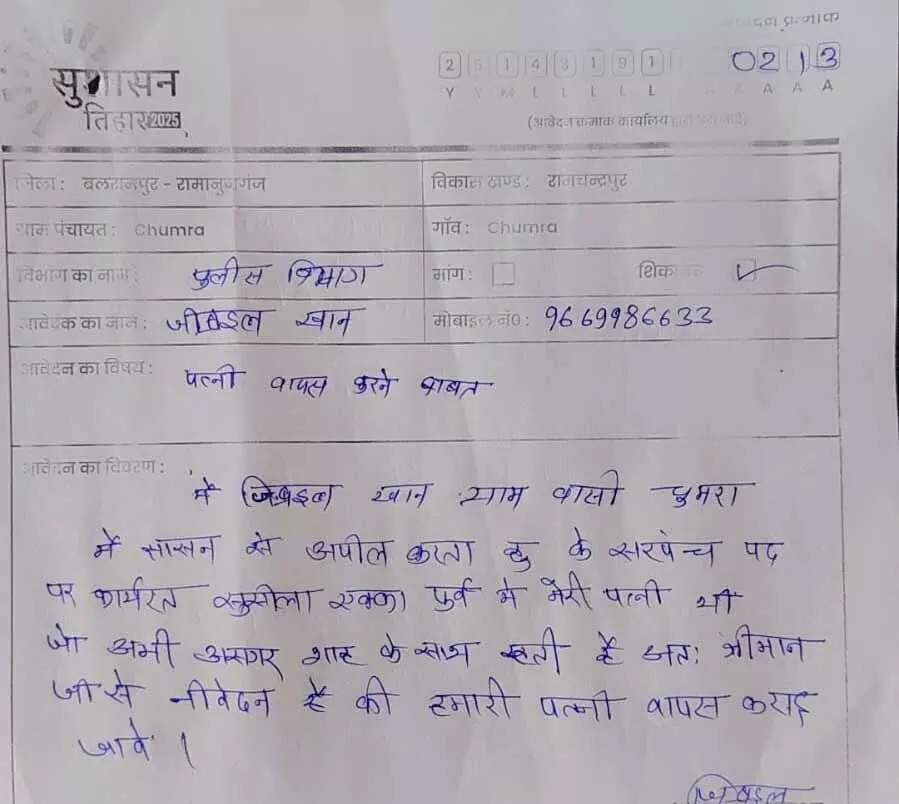 आवेदन क्रमांक
2 5 1 4 3 1 9 1 0213
Y Y M L L L L L A A A A
सुशासन
तिहार 2025
(आवेदन क्रमांक कार्यालय द्वारा भरा जावे)
जिला : बलरामपुर - रामानुजगंज विकास खण्ड : रामचन्द्रपुर
ग्राम पंचायत : Chumra गाँव : Chumra
विभाग का नाम : पुलीस विभाग मांग : शिकायत
आवेदक का नाम : जीबइल खान मोबाइल नं0 : 9669986633
आवेदन का विषय : पत्नी वापस करने बाबत
आवेदन का विवरण :
मैं जिबइल खान ग्राम वासी चुमरा
में सासन से अपील करता हु के सरपंन्च पद
पर कार्यरत सुसीला एक्का पुर्व मे मेरी पत्नी थी
जो अभी असगर शाह के साथ रहती है अतः श्रीमान
जी से नीवेदन है की हमारी पत्नी वापस कराइ
जावे ।